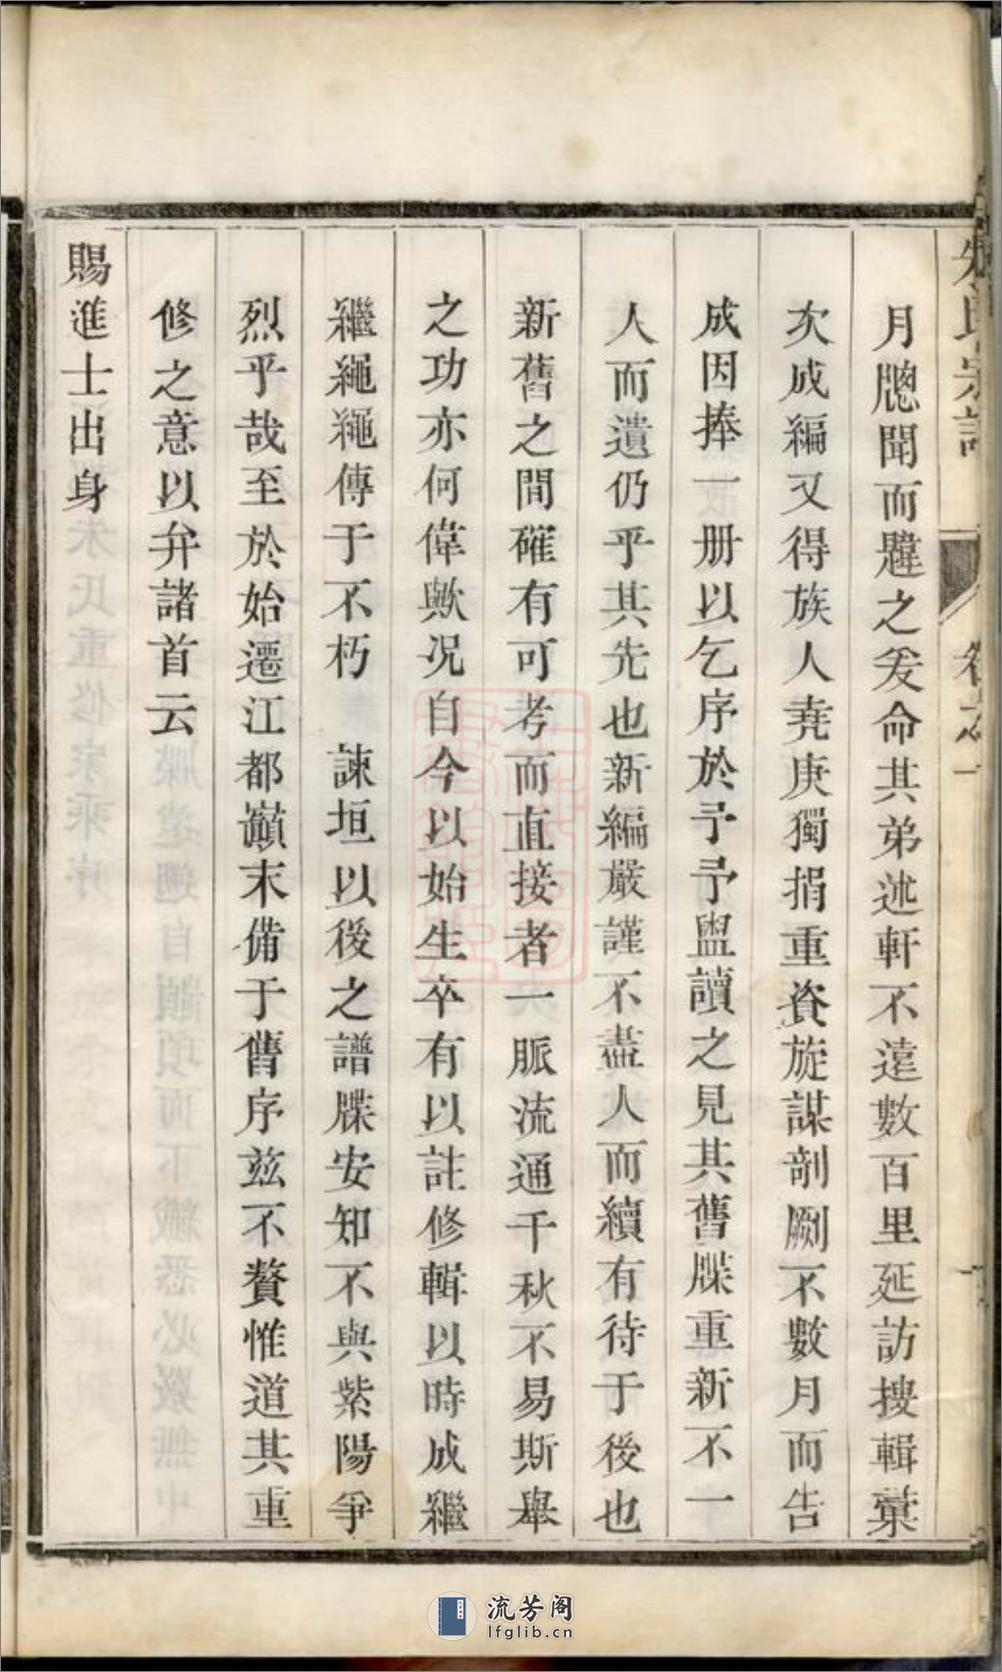 朱氏宗譜 卷之一
月牕聞而韙之爰命其弟述軒不遠數百里延訪搜輯彙
次成編又得族人堯庚獨捐重資旋謀剞劂不數月而告
成因捧一册以乞序於予予盥讀之見其舊牒重新不一
人而遺仍乎其先也新編嚴謹不盡人而續有待于後也
新舊之間確有可考而直接者一脈流通千秋不易斯舉
之功亦何偉歟况自今以始生卒有以註修輯以時成繼
繼繩繩傳于不朽 諫垣以後之譜牒安知不與紫陽爭
烈乎哉至於始遷江都巔末備于舊序玆不贅惟道其重
修之意以弁諸首云
賜進士出身
流芳阁
lfglib.cn